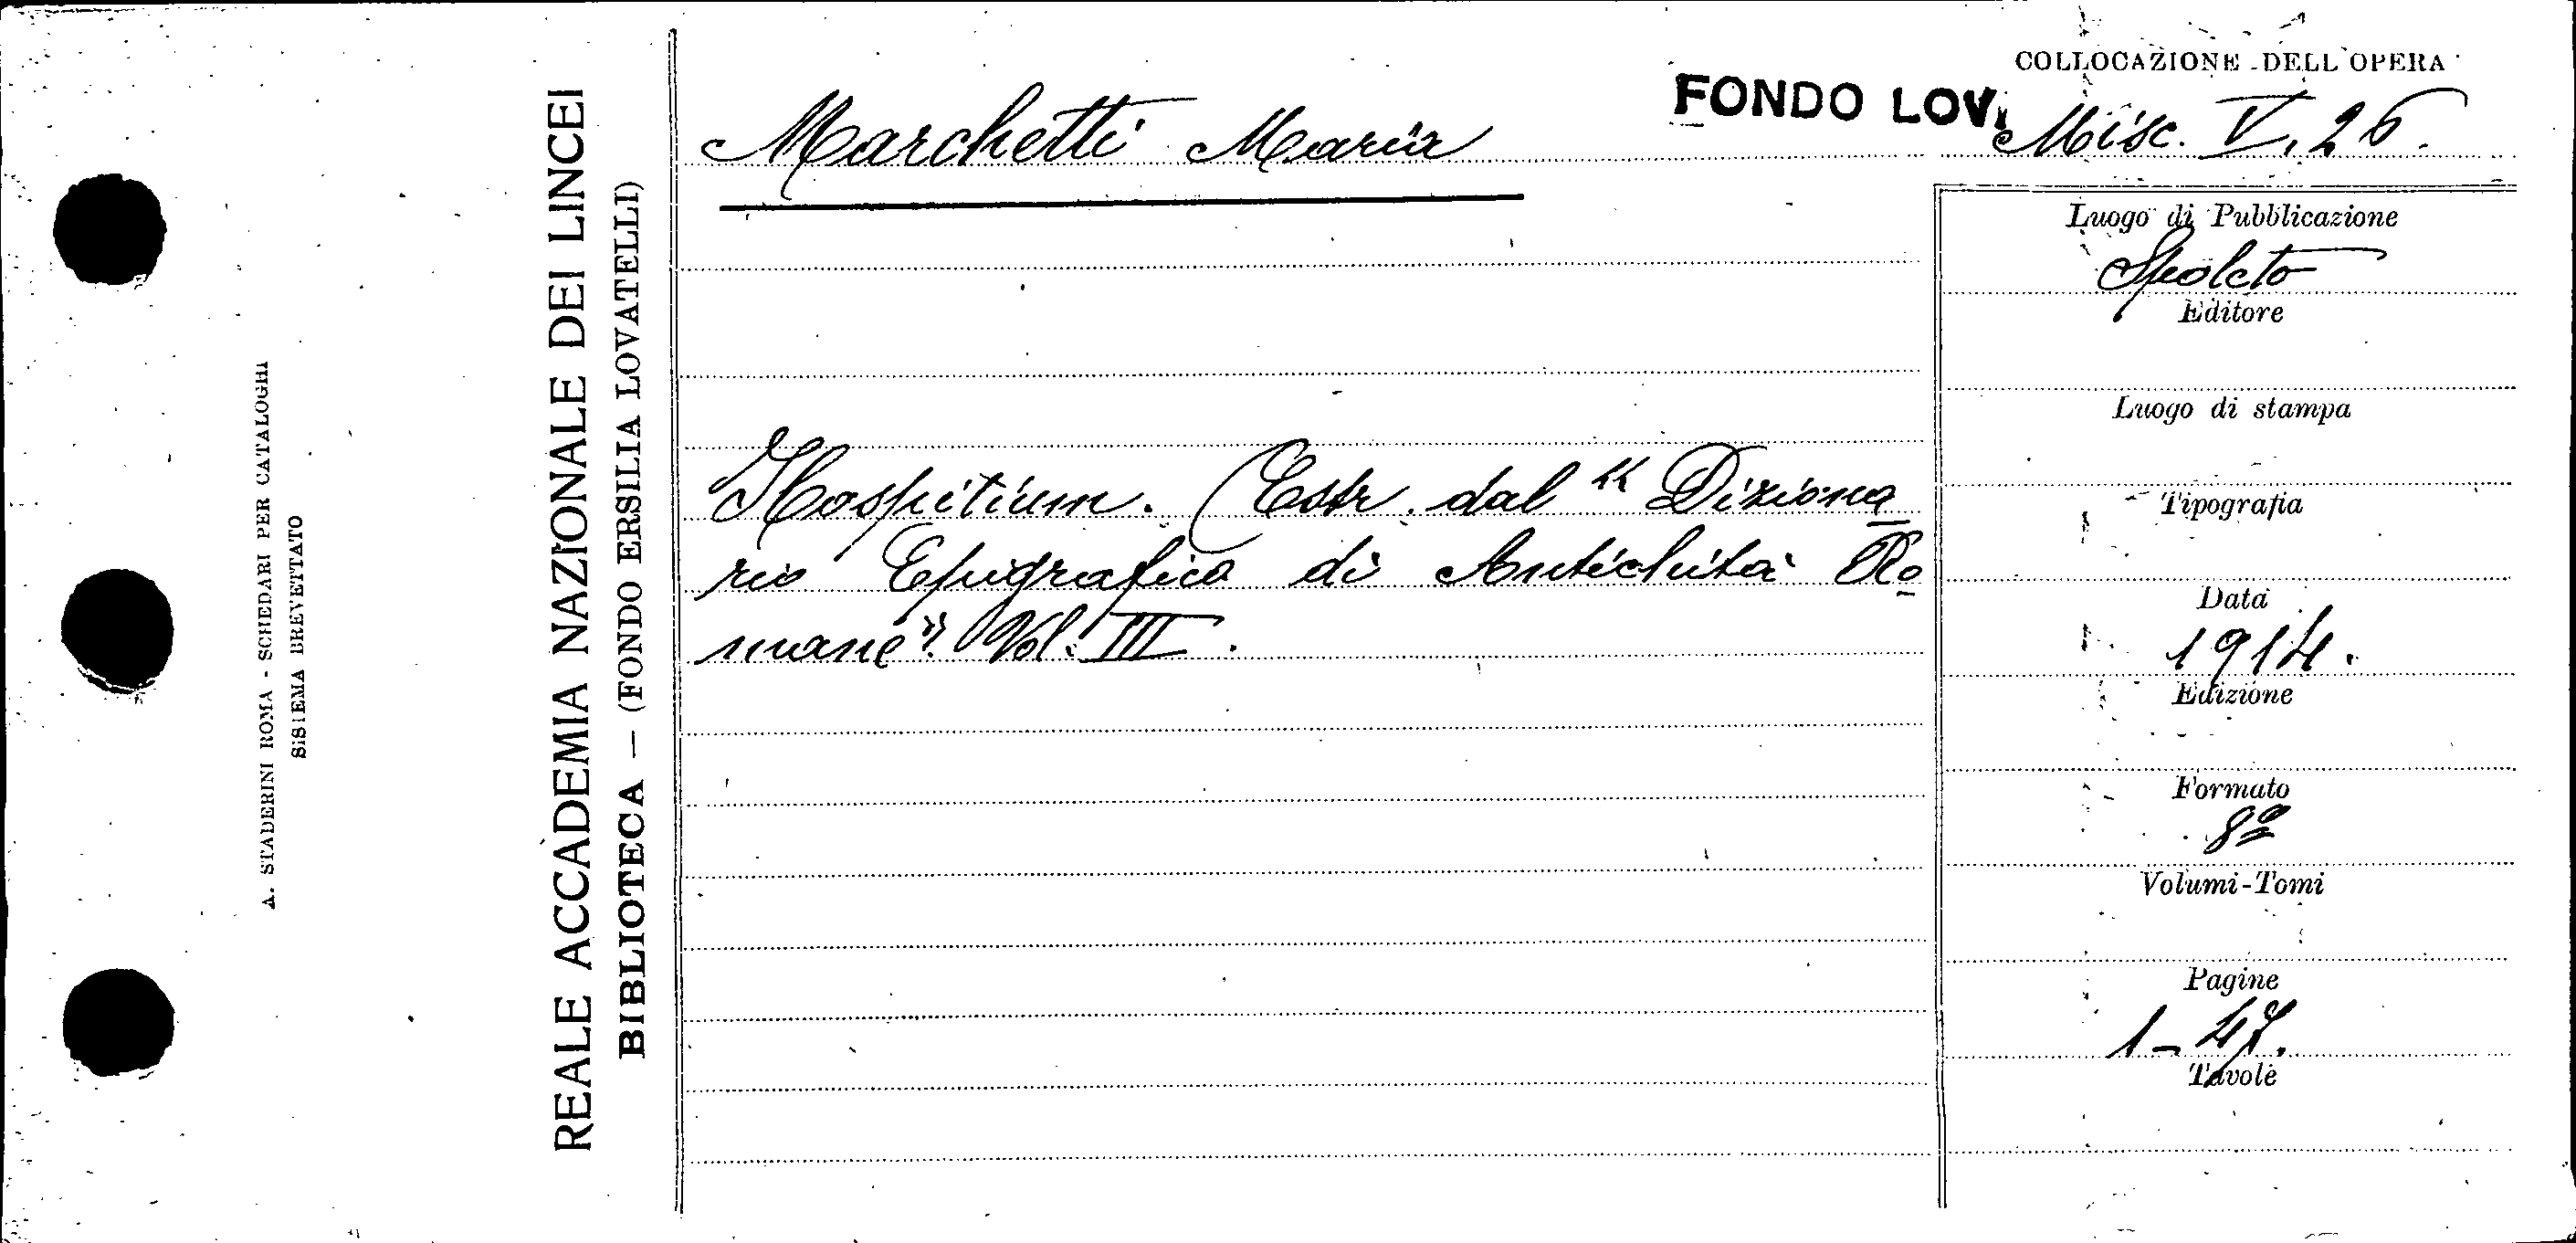 A. STADERINI ROMA - SCHEDARI PER CATALOGHI
SISTEMA BREVETTATO
REALE ACCADEMIA NAZIONALE DEI LINCEI
BIBLIOTECA — (FONDO ERSILIA LOVATELLI)
Marchetti Maria
FONDO LOV.
COLLOCAZIONE DELL'OPERA
Misc. V, 26.
Hospitium. (Estr. dal "Diziona
rio Epigrafico di Antichità Ro
mane". Vol. III.
Luogo di Pubblicazione
Spoleto
Editore
Luogo di stampa
Tipografia
Data
1914.
Edizione
Formato
8º
Volumi-Tomi
Pagine
1-47.
Tavole